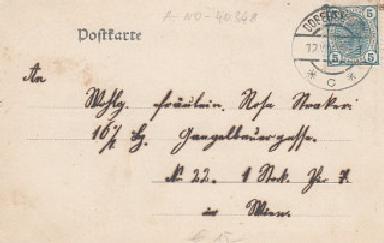 A-NO-40348
Postkarte
5 5
5 5
* C *
An
Wohlg. Fräulein Rosa
16/
Gangelbauergasse.
No 22. 1 Stock. Th. 7.
in Wien.